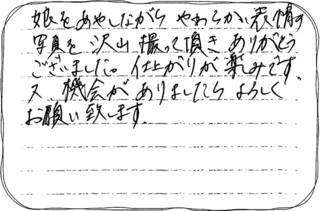 娘をあやしながら やわらかい表情の
写真を 沢山 撮って頂き ありがとう
ございました。仕上がりが楽みです。
又 機会が ありましたら よろしく
お願い致します。